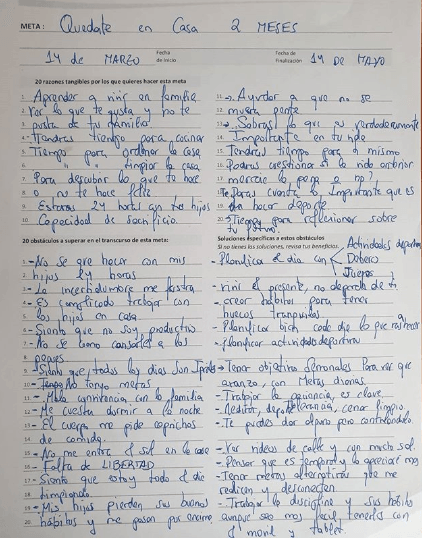 META: Quedate en Casa 2 MESES
14 de MARZO Fecha de inicio Fecha de Finalización 14 DE MAYO
20 razones tangibles por los que quieres hacer esta meta
1. Aprender a vivir en familia
2. Ver lo que te gusta y no te
3. gusta de tu familia
4. Tendras tiempo para cocinar
5. Tiempo para ordenar la casa
6. limpiar la casa
7. Para descubrir lo que te hace
8. o no te hace feliz
9. Estaras 24 horas con tus hijos
10. Capacidad de sacrificio.
11. Ayudar a que no se
12. muera gente
13. Sabras lo que es verdaderamente
14. Importante en tu vida
15. Tendras tiempo para ti mismo
16. Podras cuestionar si la vida anterior
17. merecia la pena o no?
18. Te daras cuenta lo importante que es
19. hacer deporte
20. Tiempo para reflexionar sobre
tu futuro.
20 obstáculos a superar en el transcurso de esta meta:
1. No se que hacer con mis
2. hijos 24 horas
3. La incertidumbre me
4. Es complicado trabajar con
5. los hijos en casa
6. Siento que no soy productivo
7. No se como cansarles a los
8. peques
9. Siento que todos los dias son iguales
10. No tengo metas
11. Mala convivencia con la familia
12. Me cuesta dormir a la noche
13. El cuerpo me pide caprichos
14. de comida.
15. No me entra el sol en la casa
16. Falta de LIBERTAD
17. Siento que estoy todo el dia
18. limpiando
19. Mis hijos pierden sus buenos
20. habitos y me pasan por encima
Soluciones específicas a estos obstáculos
Si no tienes las soluciones, revisa tus beneficios.
Actividades deportivas
- Planifica el dia con Deberes
Juegos
- Vivir el presente, no depende de ti
- crear habitos para tener
huecos tranquilos
- Planificar bien cada dia lo que vas hacer
- planificar actividades deportivas
- Tener objetivos semanales para ver que
avanzo, con Metas diarias.
- Trabajar la tolerancia, es clave
- Meditar, deporte, cenar limpio
- Te puedes dar alguno pero controlandolo
- Ver videos de calle y con mucho sol
- Pensar que es temporal y lo apreciaré mas
- Tener metas alternativas que me
realicen y desconecten
- Trabajar la disciplina y sus habitos
aunque sea mas facil tenerlos con
el movil y tablet